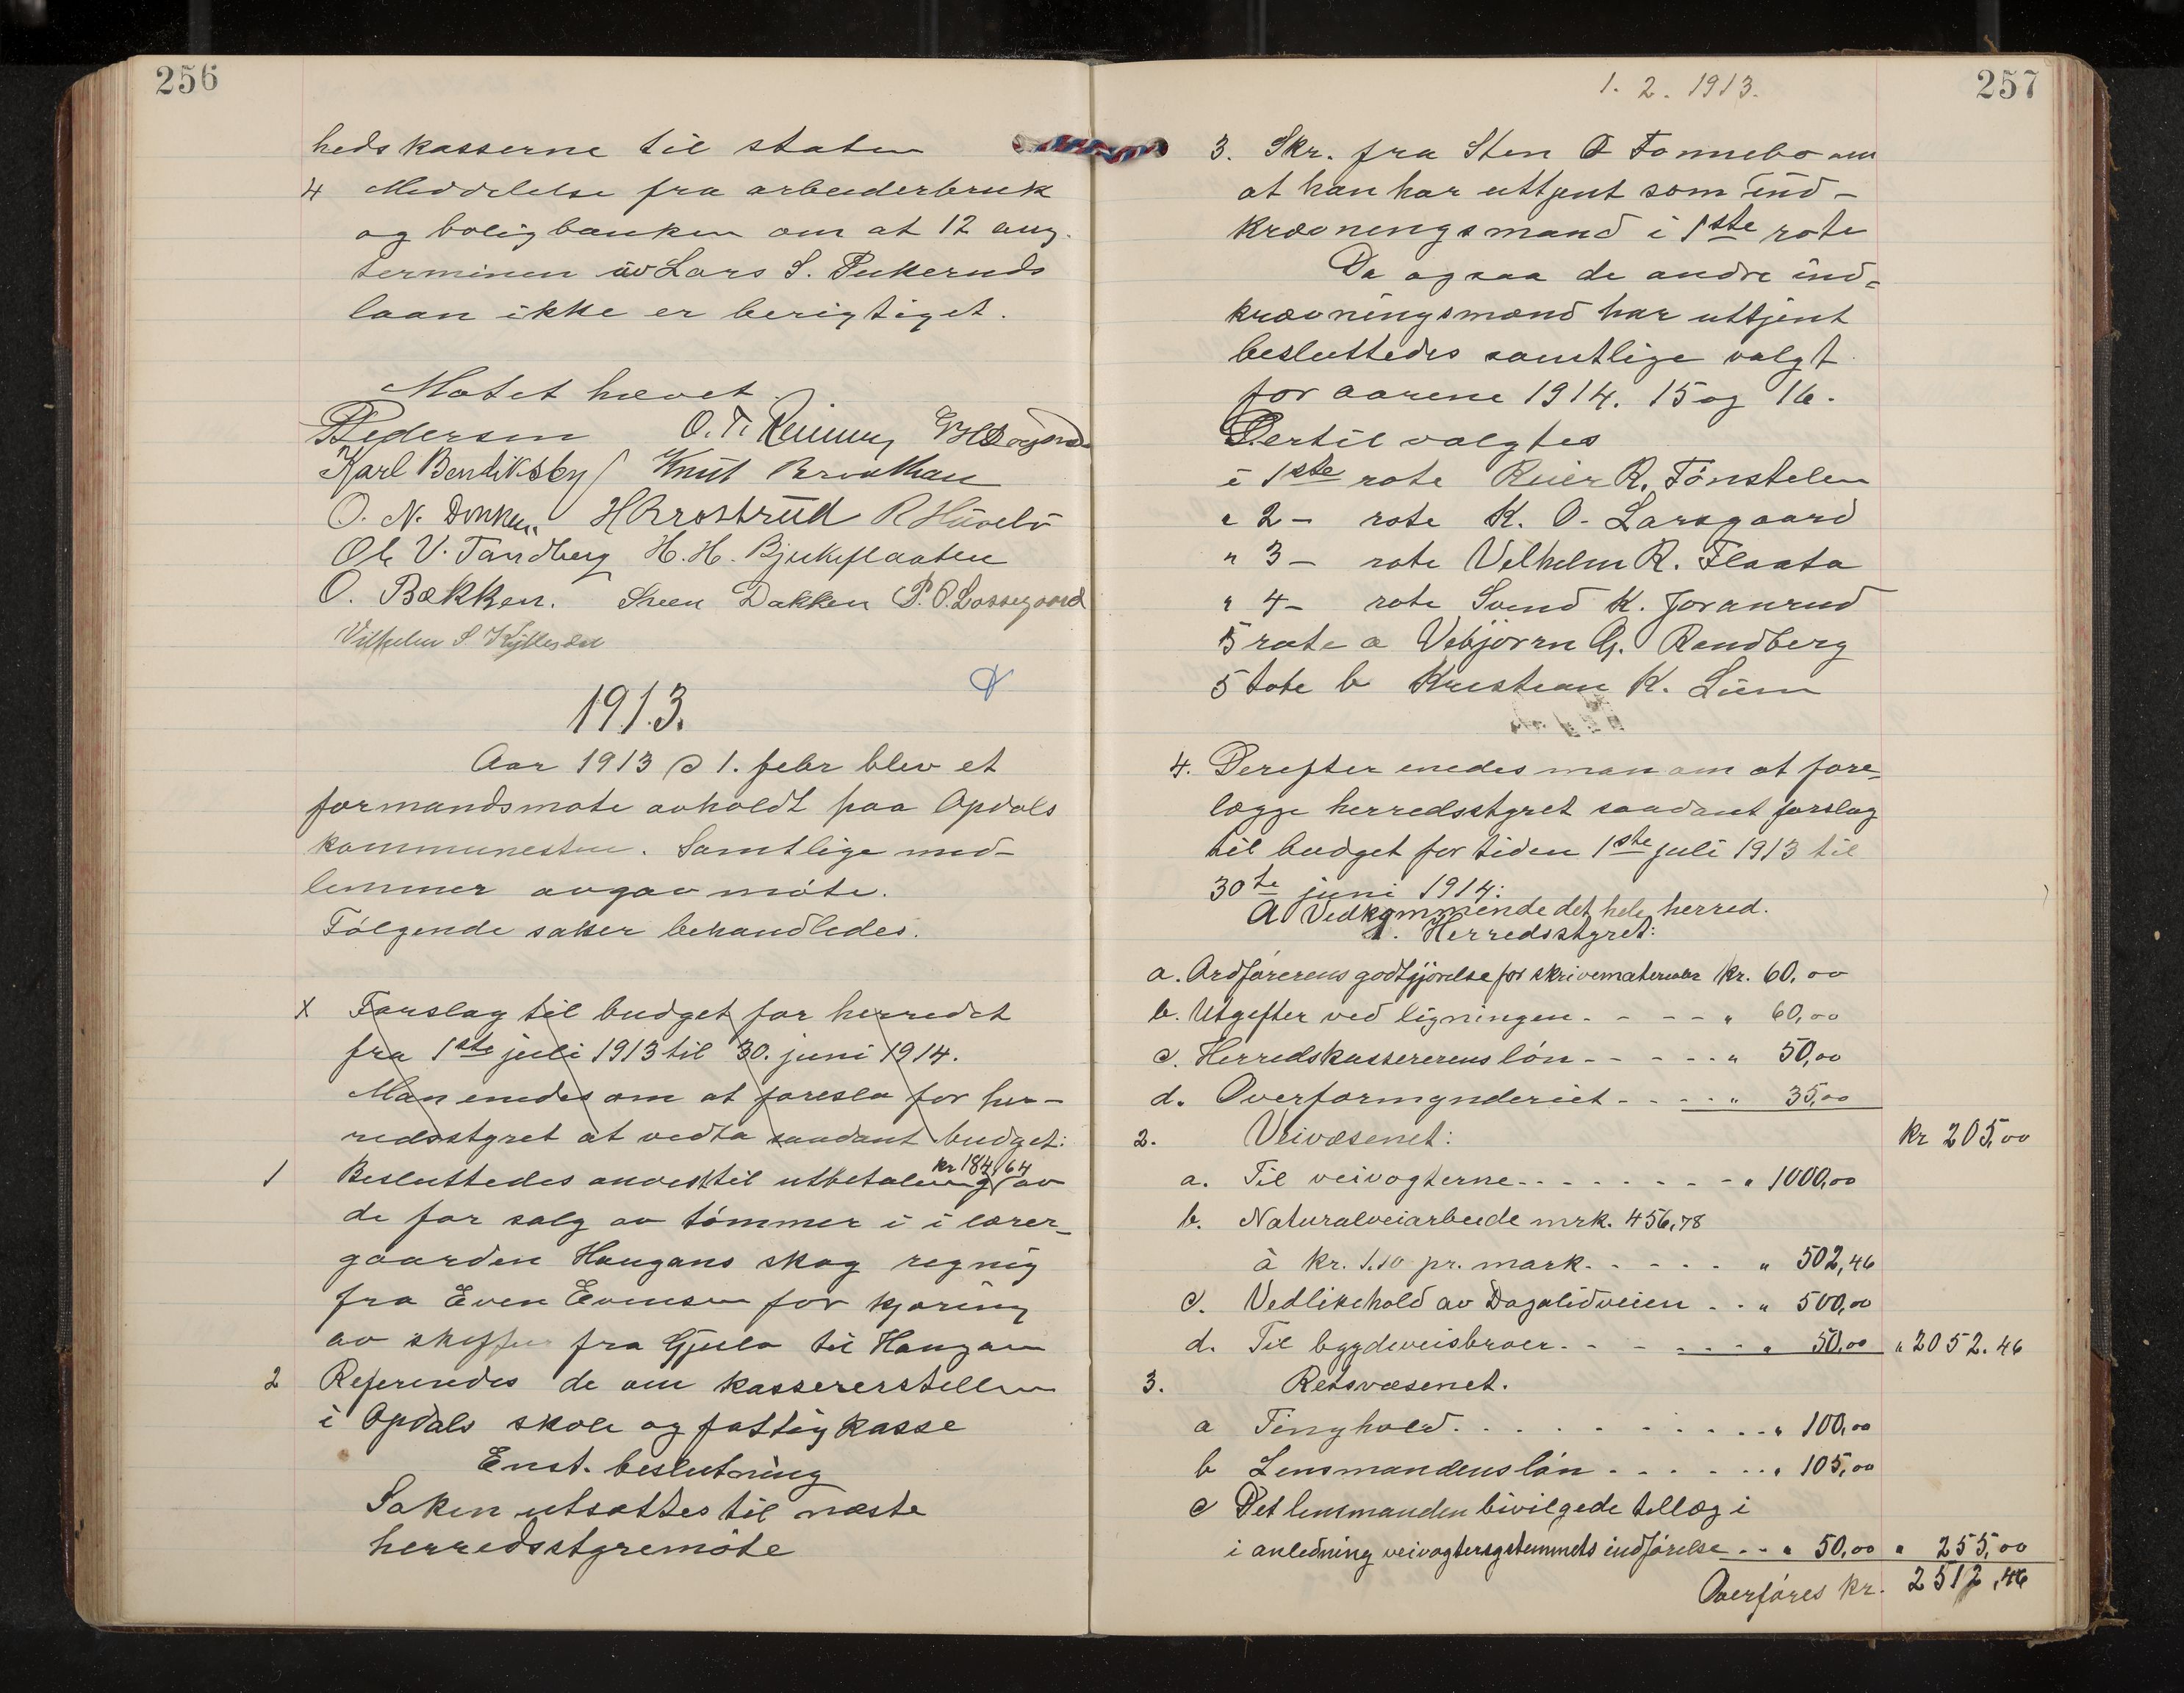 256
hedskasserne til staten
4 Meddelelse fra arbeiderbruk
og boligbanken om at 12 aug.
terminen av Lars S. Pukeruds
laan ikke er berigtiget.
Motet hævet
Pedersen O. T.
Karl Bendiksby Knut Braathen
O. N. Dokken H Brostrud R Huvebo
Ole V. Tandberg H. H. Bjerkeflaaten
O. Bækken. Steen Dakken P. O. Lassegaard
Vilhelm S.
1913.
Aar 1913 d 1. febr blev et
formandsmote avholdt paa Opdals
kommunestue. Samtlige med-
lemmer avgav møte.
Følgende saker behandledes.
x Forslag til budget for herredet
fra 1ste juli 1913 til 30. juni 1914.
Man enedes om at foresla for her-
redsstyret at vedta saadant budget:
kr 184,64
1 Besluttedes anvist til utbetaling av
de for salg av tømmer i i lærer-
gaarden Haugans skog regnig
fra Even Evensen for kjøring
av fra Gjulo til Haugan
2 Refereredes de om kassererstillen
i Opdals skole og fattigkasse
Enst. beslutning
Saken utsattes til næste
herredsstyremøte
1. 2. 1913.
257
3. Skr. fra Sten O Tonnebo om
at han har uttjent som ind-
krævningsmand i 1ste rote
Da ogsaa de andre ind-
krævningsmænd har uttjent
besluttedes samtlige valgt
for aarene 1914. 15 og 16.
Dertil valgtes
i 1ste rote Reier R. Tønstelen
" 2 - rote K. O. Larsgaard
" 3 - rote Velhelm R. Flaata
" 4 - rote Svend K. Joranrud
5 rote a Vebjørn G. Randberg
5 rote b Kristian K. Liim
4. Derefter enedes man om at fore-
lægge herredsstyret saadant forslag
til budget for tiden 1ste juli 1913 til
30te juni 1914:
A Vedkommende det hele herred.
1. Herredsstyret:
a. Ordførerens godtgjørelse for skrivematerialer kr. 60,00
b. Utgifter ved ligningen - - - - " 60,00
c. Herredskassererens løn - - - - - " 50,00
d. Overformynderiet - - - - " 35,00
2. Veivæsenet: kr 205,00
a. Til veivogterne - - - - - - - - " 1000,00
b. Naturalveiarbeide mrk. 456,78
à kr. 1.10 pr. mark. - - - - - " 502,46
c. Vedlikehold av Dagalidveien - - " 500,00
d. Til bygdeveisbroer. - - - - - - " 50,00 " 2052.46
3. Retsvæsenet.
a Tinghold. . . . . . . . . . . " 100,00
b Lensmandens løn . . . . . . . " 105,00
c Det lensmanden bivilgede tillæg i
i anledning veivogtersystemmets indførelse - - " 50,00 " 255,00
Overføres kr. 2512,46